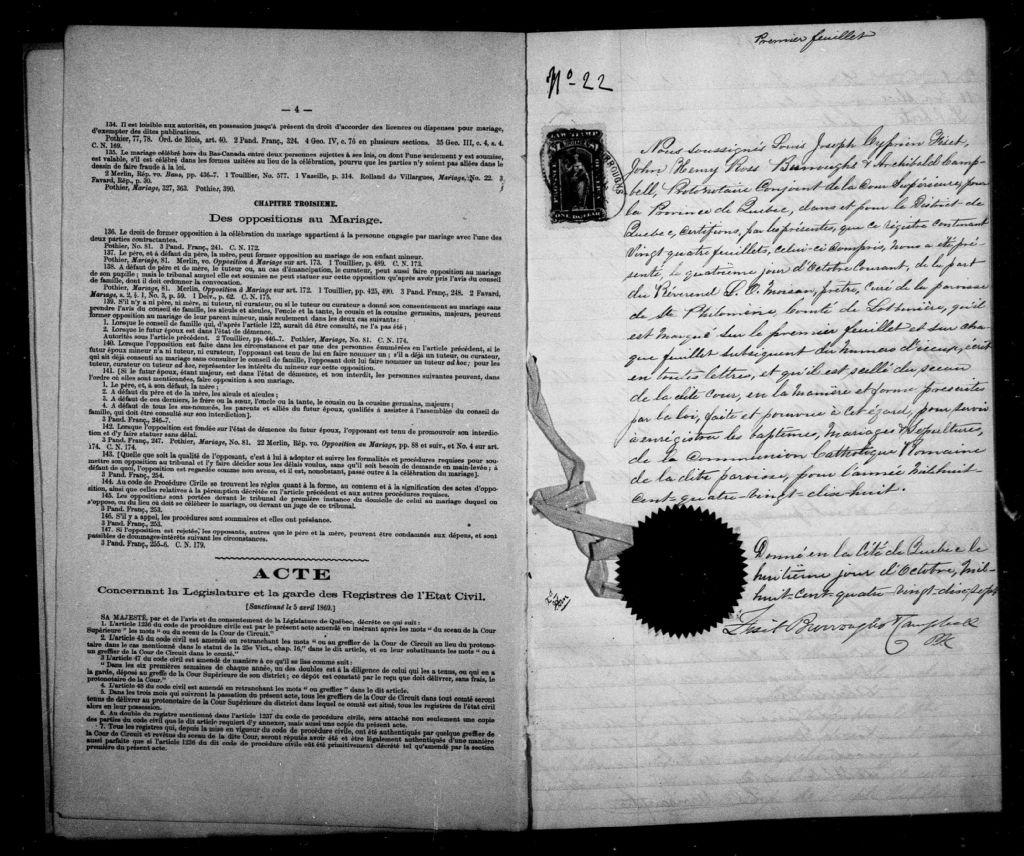 — 4 —
134. Il est loisible aux autorités, en possession jusqu'à présent du droit d'accorder des licences ou dispenses pour mariage,
d'exempter des dites publications.
Pothier, 77, 78. Ord. de Blois, art. 40. 2 Pand. Franç., 324. 4 Geo. IV, c. 75 en plusieurs sections. 35 Geo. III, c. 4, s. 4.
C. N. 169.
135. Le mariage célébré hors du Bas-Canada entre deux personnes sujettes à ses lois, ou dont l'une seulement y est soumise,
est valable, s'il est célébré dans les formes usitées au lieu de la célébration, pourvu que les parties n'y soient pas allées dans le
dessin de faire fraude à la loi.
2 Merlin, Rép. vo. Bans, pp. 436-7. 1 Touillier, No. 577. 1 Vazeille, p. 314. Rolland de Villargues, Mariage, No. 22. 3
Favard, Rép., p. 30.
Pothier, Mariage, 327, 363. Pothier, 390.
CHAPITRE TROISIEME.
Des oppositions au Mariage.
136. Le droit de former opposition à la célébration du mariage appartient à la personne engagée par mariage avec l'une des
deux parties contractantes.
Pothier, No. 81. 3 Pand. Franç., 241. C. N. 172.
137. Le père, et à défaut du père, la mère, peut former opposition au mariage de son enfant mineur.
Pothier, Mariage, 81. Merlin, vo. Opposition à Mariage sur art. 173. 1 Touillier, p. 489. C. N. 173.
138. A défaut de père et de mère, le tuteur ou, au cas d'émancipation, le curateur, peut aussi faire opposition au mariage
de son pupille; mais le tribunal auquel elle est soumise ne peut statuer sur cette opposition qu'après avoir pris l'avis du conseil
de famille, dont il doit ordonner la convocation.
Pothier, Mariage, 81. Merlin, Opposition à Mariage sur art. 172. 1 Touillier, pp. 425, 490. 3 Pand. Franç., 248. 2 Favard,
Mariage, s. 2, § 1, No. 3, p. 59. 1 Delv., p. 62. C. N. 175.
139. S'il n'y a ni père, ni mère, ni tuteur, ni curateur, ou si le tuteur ou curateur a donné son consentement au mariage sans
prendre l'avis du conseil de famille, les aïeuls et aïeules, l'oncle et la tante, le cousin et la cousine germains, majeurs, peuvent
former opposition au mariage de leur parent mineur, mais seulement dans les deux cas suivants:
1. Lorsque le conseil de famille qui, d'après l'article 122, aurait dû être consulté, ne l'a pas été;
2. Lorsque le futur époux est dans l'état de démence.
Autorités sous l'article précédent. 2 Touillier, pp. 446-7. Pothier, Mariage, No. 81. C. N. 174.
140. Lorsque l'opposition est faite dans les circonstances et par une des personnes énumérées en l'article précédent, si le
futur époux mineur n'a ni tuteur, ni curateur, l'opposant est tenu de lui en faire nommer un; s'il a déjà un tuteur, ou curateur,
qui ait déjà consenti au mariage sans consulter le conseil de famille, l'opposant doit lui faire nommer un tuteur ad hoc; pour les
tuteur, curateur ou tuteur ad hoc, représenter les intérêts du mineur sur cette opposition.
141. [Si le futur époux, étant majeur, est dans l'état de démence, et non interdit, les personnes suivantes peuvent, dans
l'ordre où elles sont mentionnées, faire opposition à son mariage.
1. Le père, et, à son défaut, la mère;
2. A défaut du père et de la mère, les aïeuls et aïeules;
3. A défaut de ces derniers, le frère ou la sœur, l'oncle ou la tante, le cousin ou la cousine germains, majeurs;
4. A défaut de tous les sus-nommés, les parents et alliés du futur époux, qualifiés à assister à l'assemblée du conseil de
famille, qui doit être consulté sur son interdiction].
3 Pand. Franç., 246-7.
142. Lorsque l'opposition est fondée sur l'état de démence du futur époux, l'opposant est tenu de promouvoir son interdic-
tion et d'y faire statuer sans délai.
3 Pand. Franç., 247. Pothier, Mariage, No. 81. 22 Merlin, Rép. vo. Opposition au Mariage, pp. 88 et suiv., et No. 4 sur art.
174. C. N. 174.
143. [Quelle que soit la qualité de l'opposant, c'est à lui à adopter et suivre les formalités et procédures requises pour sou-
mettre son opposition au tribunal et l'y faire décider sous les délais voulus, sans qu'il soit besoin de demande en main-levée; à
défaut de quoi, l'opposition est regardée comme non avenu, et il est, nonobstant, passé outre à la célébration du mariage].
3 Pand. Franç., 254.
144. Au code de Procédure Civile se trouvent les règles quant à la forme, au contenu et à la signification des actes d'oppo-
sition, ainsi que celles relatives à la péremption décrétée en l'article précédent et aux autres procédures requises.
145. Les oppositions sont portées devant le tribunal de première instance du domicile de celui au mariage duquel on
s'oppose, ou du lieu où doit se célébrer le mariage, ou devant un juge de ce tribunal.
3 Pand. Franç., 253.
146. S'il y a appel, les procédures sont sommaires et elles ont préséance.
3 Pand. Franç., 253.
147. Si l'opposition est rejetée, les opposants, autres que le père et la mère, peuvent être condamnés aux dépens, et sont
passibles de dommages-intérêts suivant les circonstances.
3 Pand. Franç., 255-6. C. N. 179.
ACTE
Concernant la Législature et la garde des Registres de l'Etat Civil.
[Sanctionné le 5 avril 1869.]
SA MAJESTÉ, par et de l'avis et du consentement de la Législature de Québec, décrète ce qui suit:
1. L'article 1236 du code de procédure civile est par le présent acte amendé en insérant après les mots "du sceau de la Cour
Supérieure" les mots "ou du sceau de la Cour de Circuit."
2. L'article 45 du code civil est amendé en retranchant les mots "ou au greffier de la Cour de Circuit au lieu du protono-
taire dans le cas mentionné dans le statut de la 25e Vict., chap. 16," dans le dit article, et en leur substituants les mots "ou à
un greffier de la Cour de Circuit dans le comté."
3 L'article 47 du code civil est amendé de manière à ce qu'il se lise comme suit:
"Dans les six premières semaines de chaque année, un des doubles est à la diligence de celui qui les a tenus, ou qui en a
la garde, déposé au greffe de la Cour Supérieure de son district; ce dépôt est constaté par le reçu que doit délivrer, sans frais, le
protonotaire de la Cour."
4. L'article 48 du code civil est amendé en retranchant les mots "ou greffier" dans le dit article.
5. Dans les trois mois qui suivront la passation du présent acte, tous les greffiers de la Cour de Circuit dans tout comté seront
tenus de délivrer au protonotaire de la Cour Supérieure du district dans lequel ce comté est situé, tous les registres de l'état civil
alors en leur possession.
6. Au double du registre mentionné dans l'article 1237 du code de procédure civile, sera attaché non seulement une copie
des parties du code civil que le dit article requiert d'y annexer, mais aussi une copie du présent acte.
7. Tous les registres qui, depuis la mise en vigueur du code de procédure civile, ont été authentiqués par quelque greffier de
la Cour de Circuit et revêtus du sceau de la dite Cour, seront réputés avoir été et être légalement authentiqués d'une manière
aussi parfaite que si l'article 1236 du dit code de procédure civile eût été primitivement décrété tel qu'amendé par la section
première du présent acte.
Premier feuillet
No- 22
LAW STAMP
ONE DOLLAR
BURROUGHS
Nous soussignés Louis Joseph Cyprien Fiset,
John Henry Ross Burroughs & Archibald Camp-
bell, Protonotaire Conjoint de la Cour Supérieure, pour
la Province de Quebec, dans et pour le District de
Quebec, Certifions, par les présentes, que ce régistre contenant
Vingt quatre feuillets, celui-ci Compris, nous a été pré-
senté, le quatrième jour d'Octobre Courant, de la part
du Révérend L. O. prêtre, Curé de la paroisse
de Ste Philomène, Comté de Lotbinière, qu'il
est Marqué sur le premier feuillet et sur cha-
que feuillet subséquent du Numero d'iceux, écrit
en toutes lettres, et qu'il est scellé du sceau
de la dite Cour, en la Manière et forme prescrites
par la loi, faite et pourvue à Cet égard, pour servir
à enrégistrer les baptêmes, Mariages & Sépultures,
de la Communion Catholique & Romaine
de la dite paroisse, pour l'année Mil huit
Cent-quatre-vingt-dix huit.
Donné en la Cité de Quebec le
huitième jour d'Octobre, Mil-
huit-Cent-quatre-vingt-dix-sept
Fiset Burroughs & Campbell